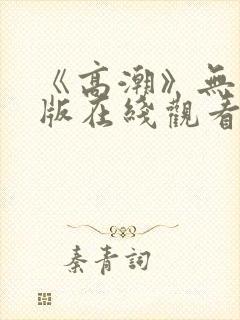 《高潮》無
版在綫觀看
秦青詞